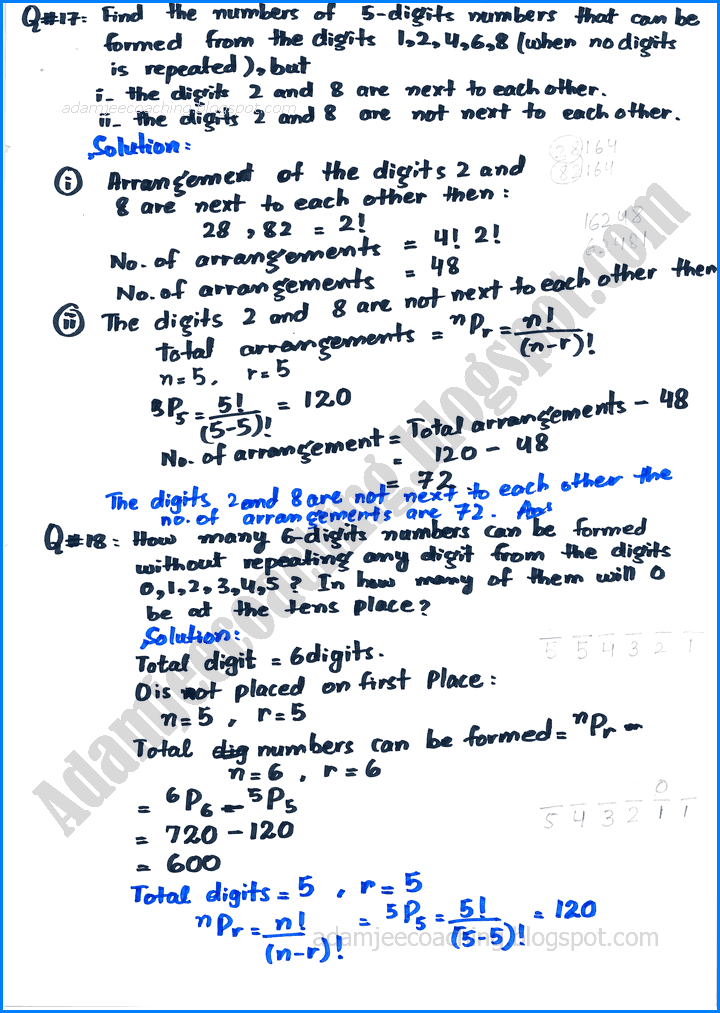 Q#17: Find the numbers of 5-digits numbers that can be
formed from the digits 1,2,4,6,8 (when no digits
is repeated), but
i- the digits 2 and 8 are next to each other.
adamjeecoaching.blogspot.com
ii- the digits 2 and 8 are not next to each other.
Solution:
28164
82164
(i) Arrangement of the digits 2 and
8 are next to each other then:
16248
28, 82 = 2!
No. of arrangements = 4! 2!
No. of arrangements = 48
(ii) The digits 2 and 8 are not next to each other then
Total arrangements = nPr = n!/(n-r)!
n=5, r=5
5P5 = 5!/(5-5)! = 120
No. of arrangement = Total arrangements - 48
= 120 - 48
= 72
The digits 2 and 8 are not next to each other the
no. of arrangements are 72. Ans
Q#18: How many 6-digits numbers can be formed
without repeating any digit from the digits
0,1,2,3,4,5? In how many of them will 0
be at the tens place?
Solution:
5 5 4 3 2 1
Total digit = 6digits.
0 is not placed on first Place:
n=5, r=5
Total dig numbers can be formed = nPr -
n=6, r=6
= 6P6 - 5P5
0
5 4 3 2 1 1
= 720 - 120
= 600
Total digits = 5, r=5
nPr = n!/(n-r)! = 5P5 = 5!/(5-5)! = 120
adamjeecoaching.blogspot.com
Adamjeecoaching.blogspot.com